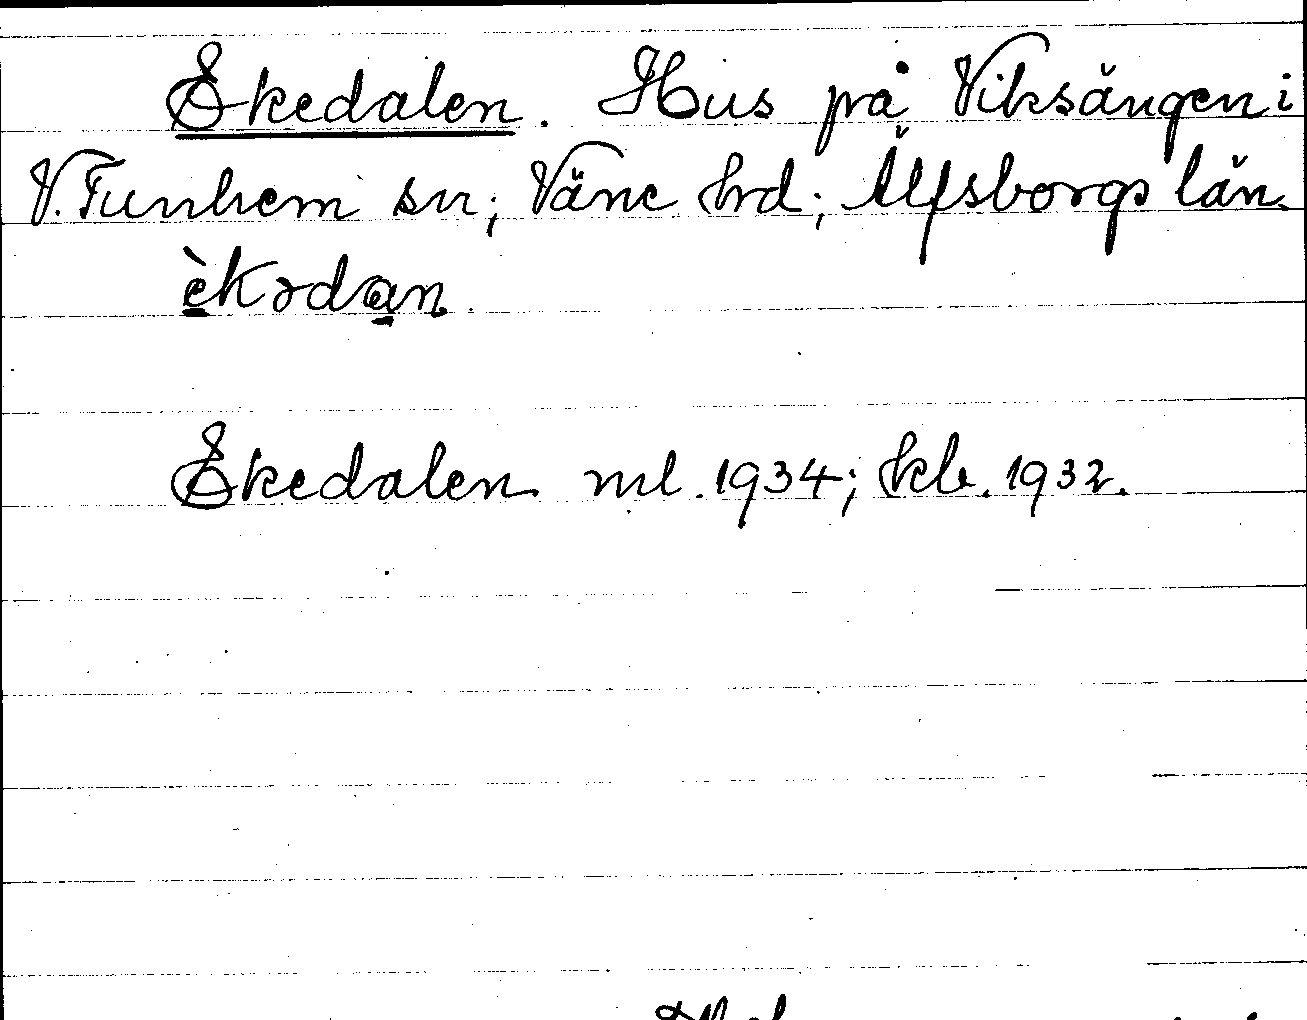 Ekedalen. Hus på Viksängen i
V. Tunhem sn; Väne hrd; Älfsborgs län.
èkədan.
Ekedalen ml. 1934; kb. 1932.